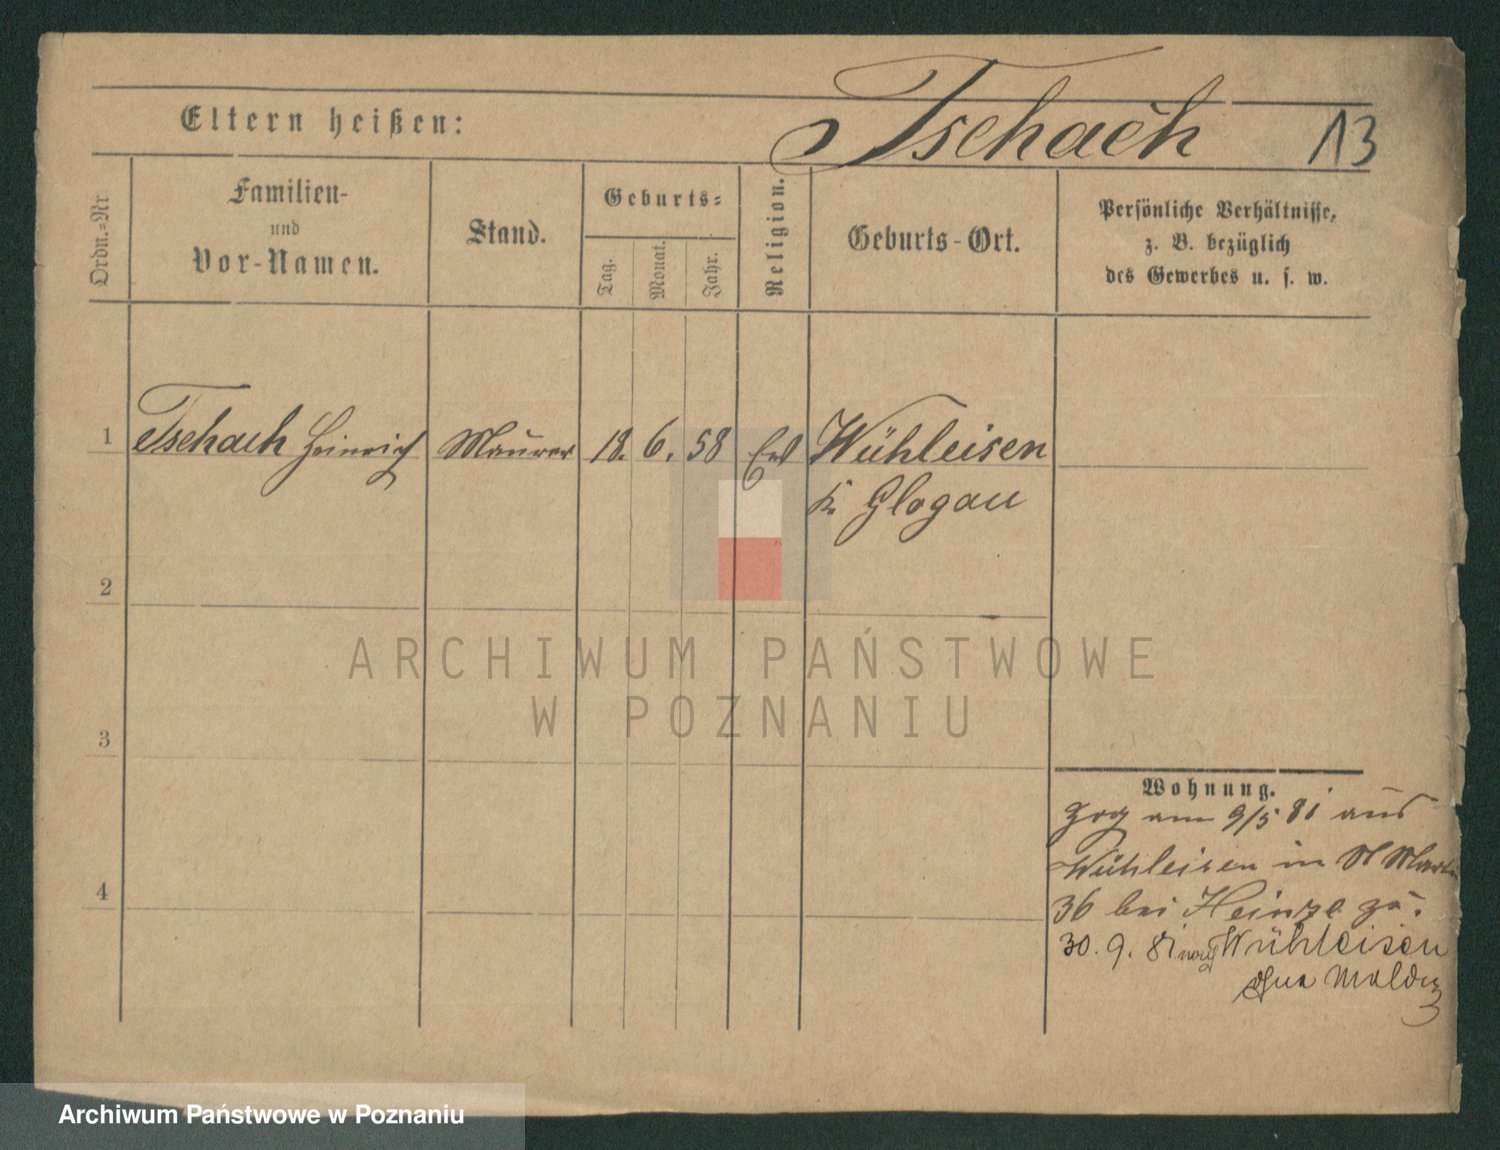 Eltern heißen:
Tschach
13
Ordn.-Nr
Familien-
und
Vor-Namen.
Stand.
Geburts-
Tag.
Monat.
Jahr.
Religion.
Geburts-Ort.
Persönliche Verhältnisse,
z. B. bezüglich
des Gewerbes u. s. w.
1
Tschach Heinrich
Maurer
18.
6.
58
Wühleisen
Kr. Glogau
2
3
4
ARCHIWUM PAŃSTWOWE
W POZNANIU
Wohnung.
Zog am 9/5 81 aus
Wühleisen in St Martin
36 bei Heinze zu.
30. 9. 81 nach Wühleisen
ohne
Archiwum Państwowe w Poznaniu